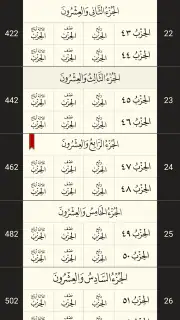 الجُزْءُ الثَّانِي وَالعِشْرُون
422 الحِزْبُ ٤٣ رُبُعُ الحِزْبُ نِصْفُ الحِزْبُ ثَلَاثَةُ أَرْبَاعِ الحِزْبُ 22
الحِزْبُ ٤٤ رُبُعُ الحِزْبُ نِصْفُ الحِزْبُ ثَلَاثَةُ أَرْبَاعِ الحِزْبُ
الجُزْءُ الثَّالِثُ وَالعِشْرُون
442 الحِزْبُ ٤٥ رُبُعُ الحِزْبُ نِصْفُ الحِزْبُ ثَلَاثَةُ أَرْبَاعِ الحِزْبُ 23
الحِزْبُ ٤٦ رُبُعُ الحِزْبُ نِصْفُ الحِزْبُ ثَلَاثَةُ أَرْبَاعِ الحِزْبُ
الجُزْءُ الرَّابِعُ وَالعِشْرُون
462 الحِزْبُ ٤٧ رُبُعُ الحِزْبُ نِصْفُ الحِزْبُ ثَلَاثَةُ أَرْبَاعِ الحِزْبُ 24
الحِزْبُ ٤٨ رُبُعُ الحِزْبُ نِصْفُ الحِزْبُ ثَلَاثَةُ أَرْبَاعِ الحِزْبُ
الجُزْءُ الخَامِسُ وَالعِشْرُون
482 الحِزْبُ ٤٩ رُبُعُ الحِزْبُ نِصْفُ الحِزْبُ ثَلَاثَةُ أَرْبَاعِ الحِزْبُ 25
الحِزْبُ ٥٠ رُبُعُ الحِزْبُ نِصْفُ الحِزْبُ ثَلَاثَةُ أَرْبَاعِ الحِزْبُ
الجُزْءُ السَّادِسُ وَالعِشْرُون
502 الحِزْبُ ٥١ رُبُعُ الحِزْبُ نِصْفُ الحِزْبُ ثَلَاثَةُ أَرْبَاعِ الحِزْبُ 26